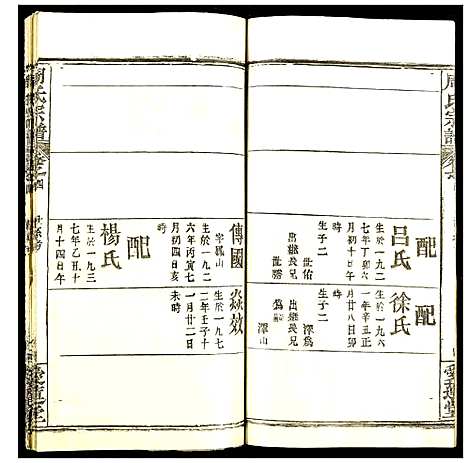 周氏宗譜
愛蓮堂
配
呂氏
生於一九二
七年丁卯六
月初十日午
時
生子二
世佑
出繼長兄
世務
配
徐氏
生於一九六
一年辛丑正
月廿八日卯
時
生子二
澤爲
出繼長兄
爲嗣
澤山
傳國
字鳳山
生於一九二
六年丙寅七
月初四日亥
時
焱效
生於一九七
二年壬子十
一月廿二日
未時
配
楊氏
生於一九三
七年乙丑十
月十四日午
周氏宗譜
卷之四
愛蓮堂